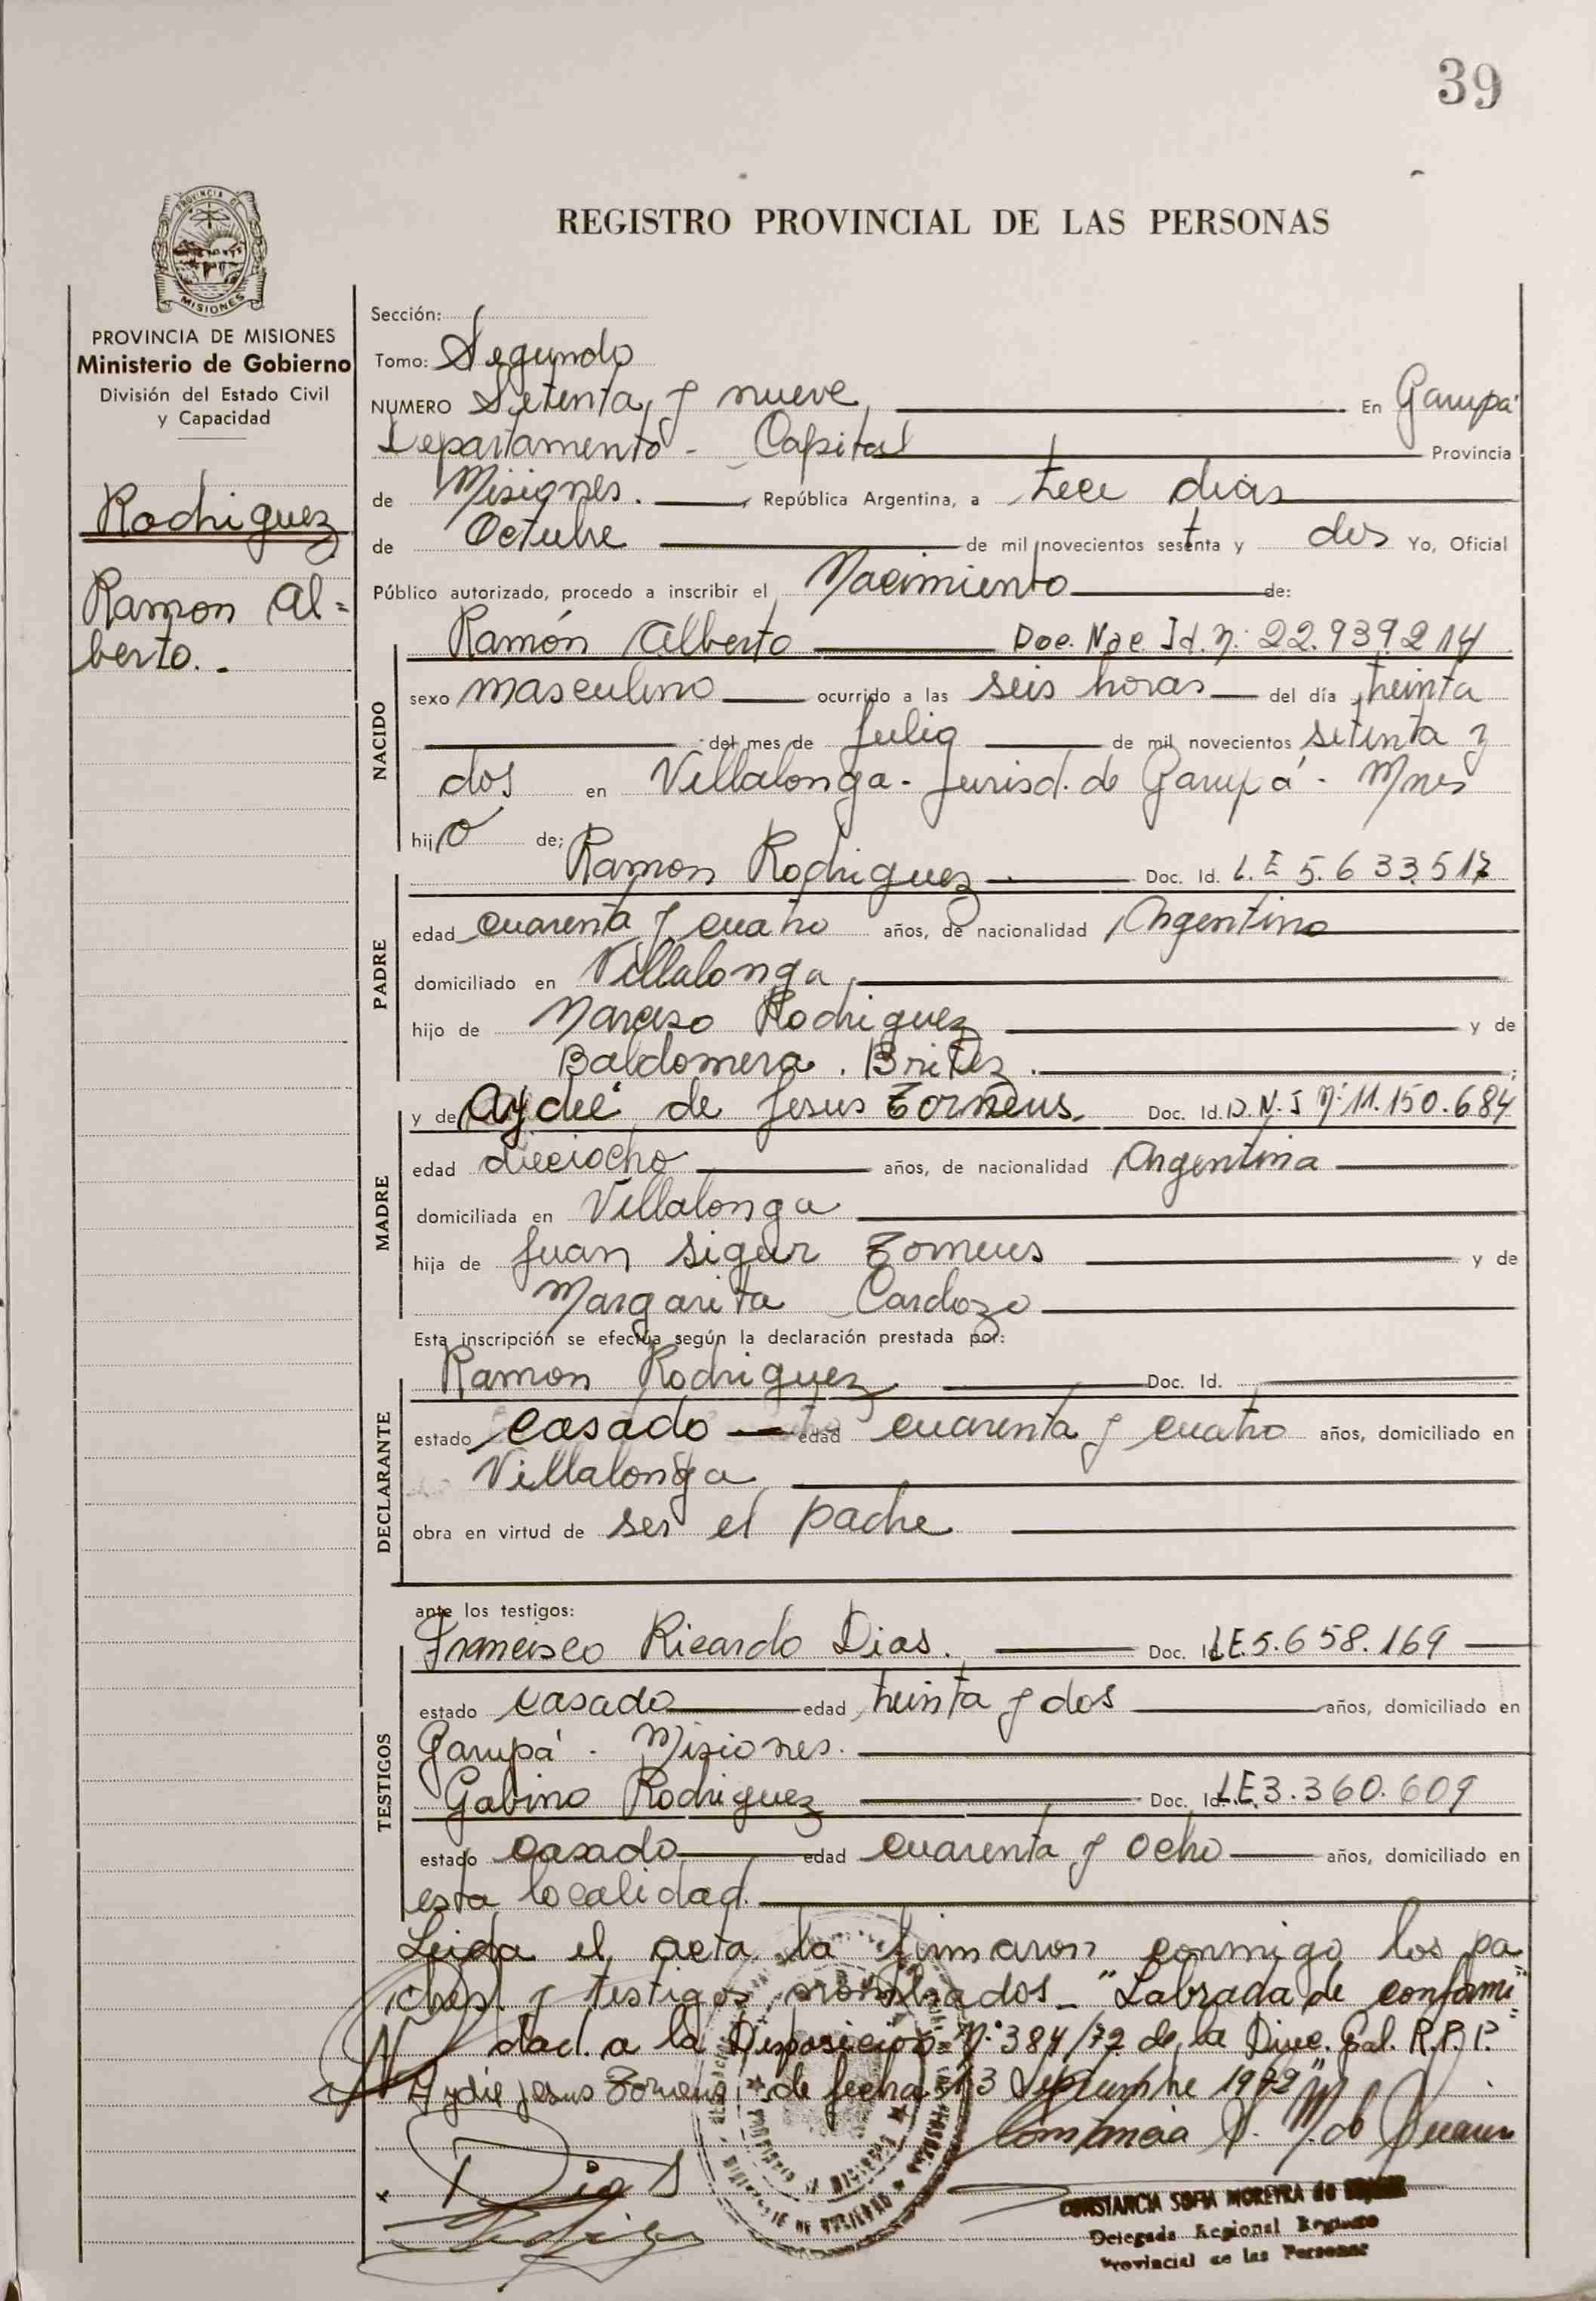 39
REGISTRO PROVINCIAL DE LAS PERSONAS
PROVINCIA DE
MISIONES
PROVINCIA DE MISIONES
Ministerio de Gobierno
División del Estado Civil
y Capacidad
Rodriguez
Ramon Al=
berto.-
Sección:
Tomo: Segundo
NUMERO Setenta y nueve En Garupá
Departamento - Capital Provincia
de Misiones. República Argentina, a trece dias
de Octubre de mil novecientos setenta y dos Yo, Oficial
Público autorizado, procedo a inscribir el Nacimiento de:
NACIDO
Ramón Alberto Doc. Nac. Id. N: 22.939.214
sexo masculino ocurrido a las seis horas del día treinta
del mes de Julio de mil novecientos setenta y
dos en Villalonga - Jurisd. de Garupá - Mnes
hijo de;
PADRE
Ramon Rodriguez Doc. Id. L.E 5.633.517
edad cuarenta y cuatro años, de nacionalidad Argentino
domiciliado en Villalonga,
hijo de Narciso Rodriguez y de
Baldomera . Britez .
MADRE
y de Aydeé de Jesus Zorneus. Doc. Id. D.N.I Nº 11.150.684
edad dieciocho años, de nacionalidad Argentina
domiciliada en Villalonga
hija de Juan Sigur Zorneus y de
Margarita Cardozo
Esta inscripción se efectúa según la declaración prestada por:
DECLARANTE
Ramon Rodriguez Doc. Id.
estado casado edad cuarenta y cuatro años, domiciliado en
Villalonga
obra en virtud de ser el padre
ante los testigos:
TESTIGOS
Francisco Ricardo Dias. Doc. Id. LE.5.658.169
estado casado edad treinta y dos años, domiciliado en
Garupá - Misiones.
Gabino Rodriguez Doc. Id. L.E.3.360.609
estado casado edad cuarenta y ocho años, domiciliado en
esta localidad.
Leida el acta la firmaron conmigo los pa
dres y testigos nombrados - "Labrada de conformi=
dad a la Disposicion N.º 384/72 de la Direc. Gal. R.P.P.
Aydée Jesus Zorneus de fecha 13 Septiembre 1972"
Constancia S. M. de
Dias
CONSTANCIA SOFIA MOREYRA de
Delegada Regional Registro
Provincial de las Personas